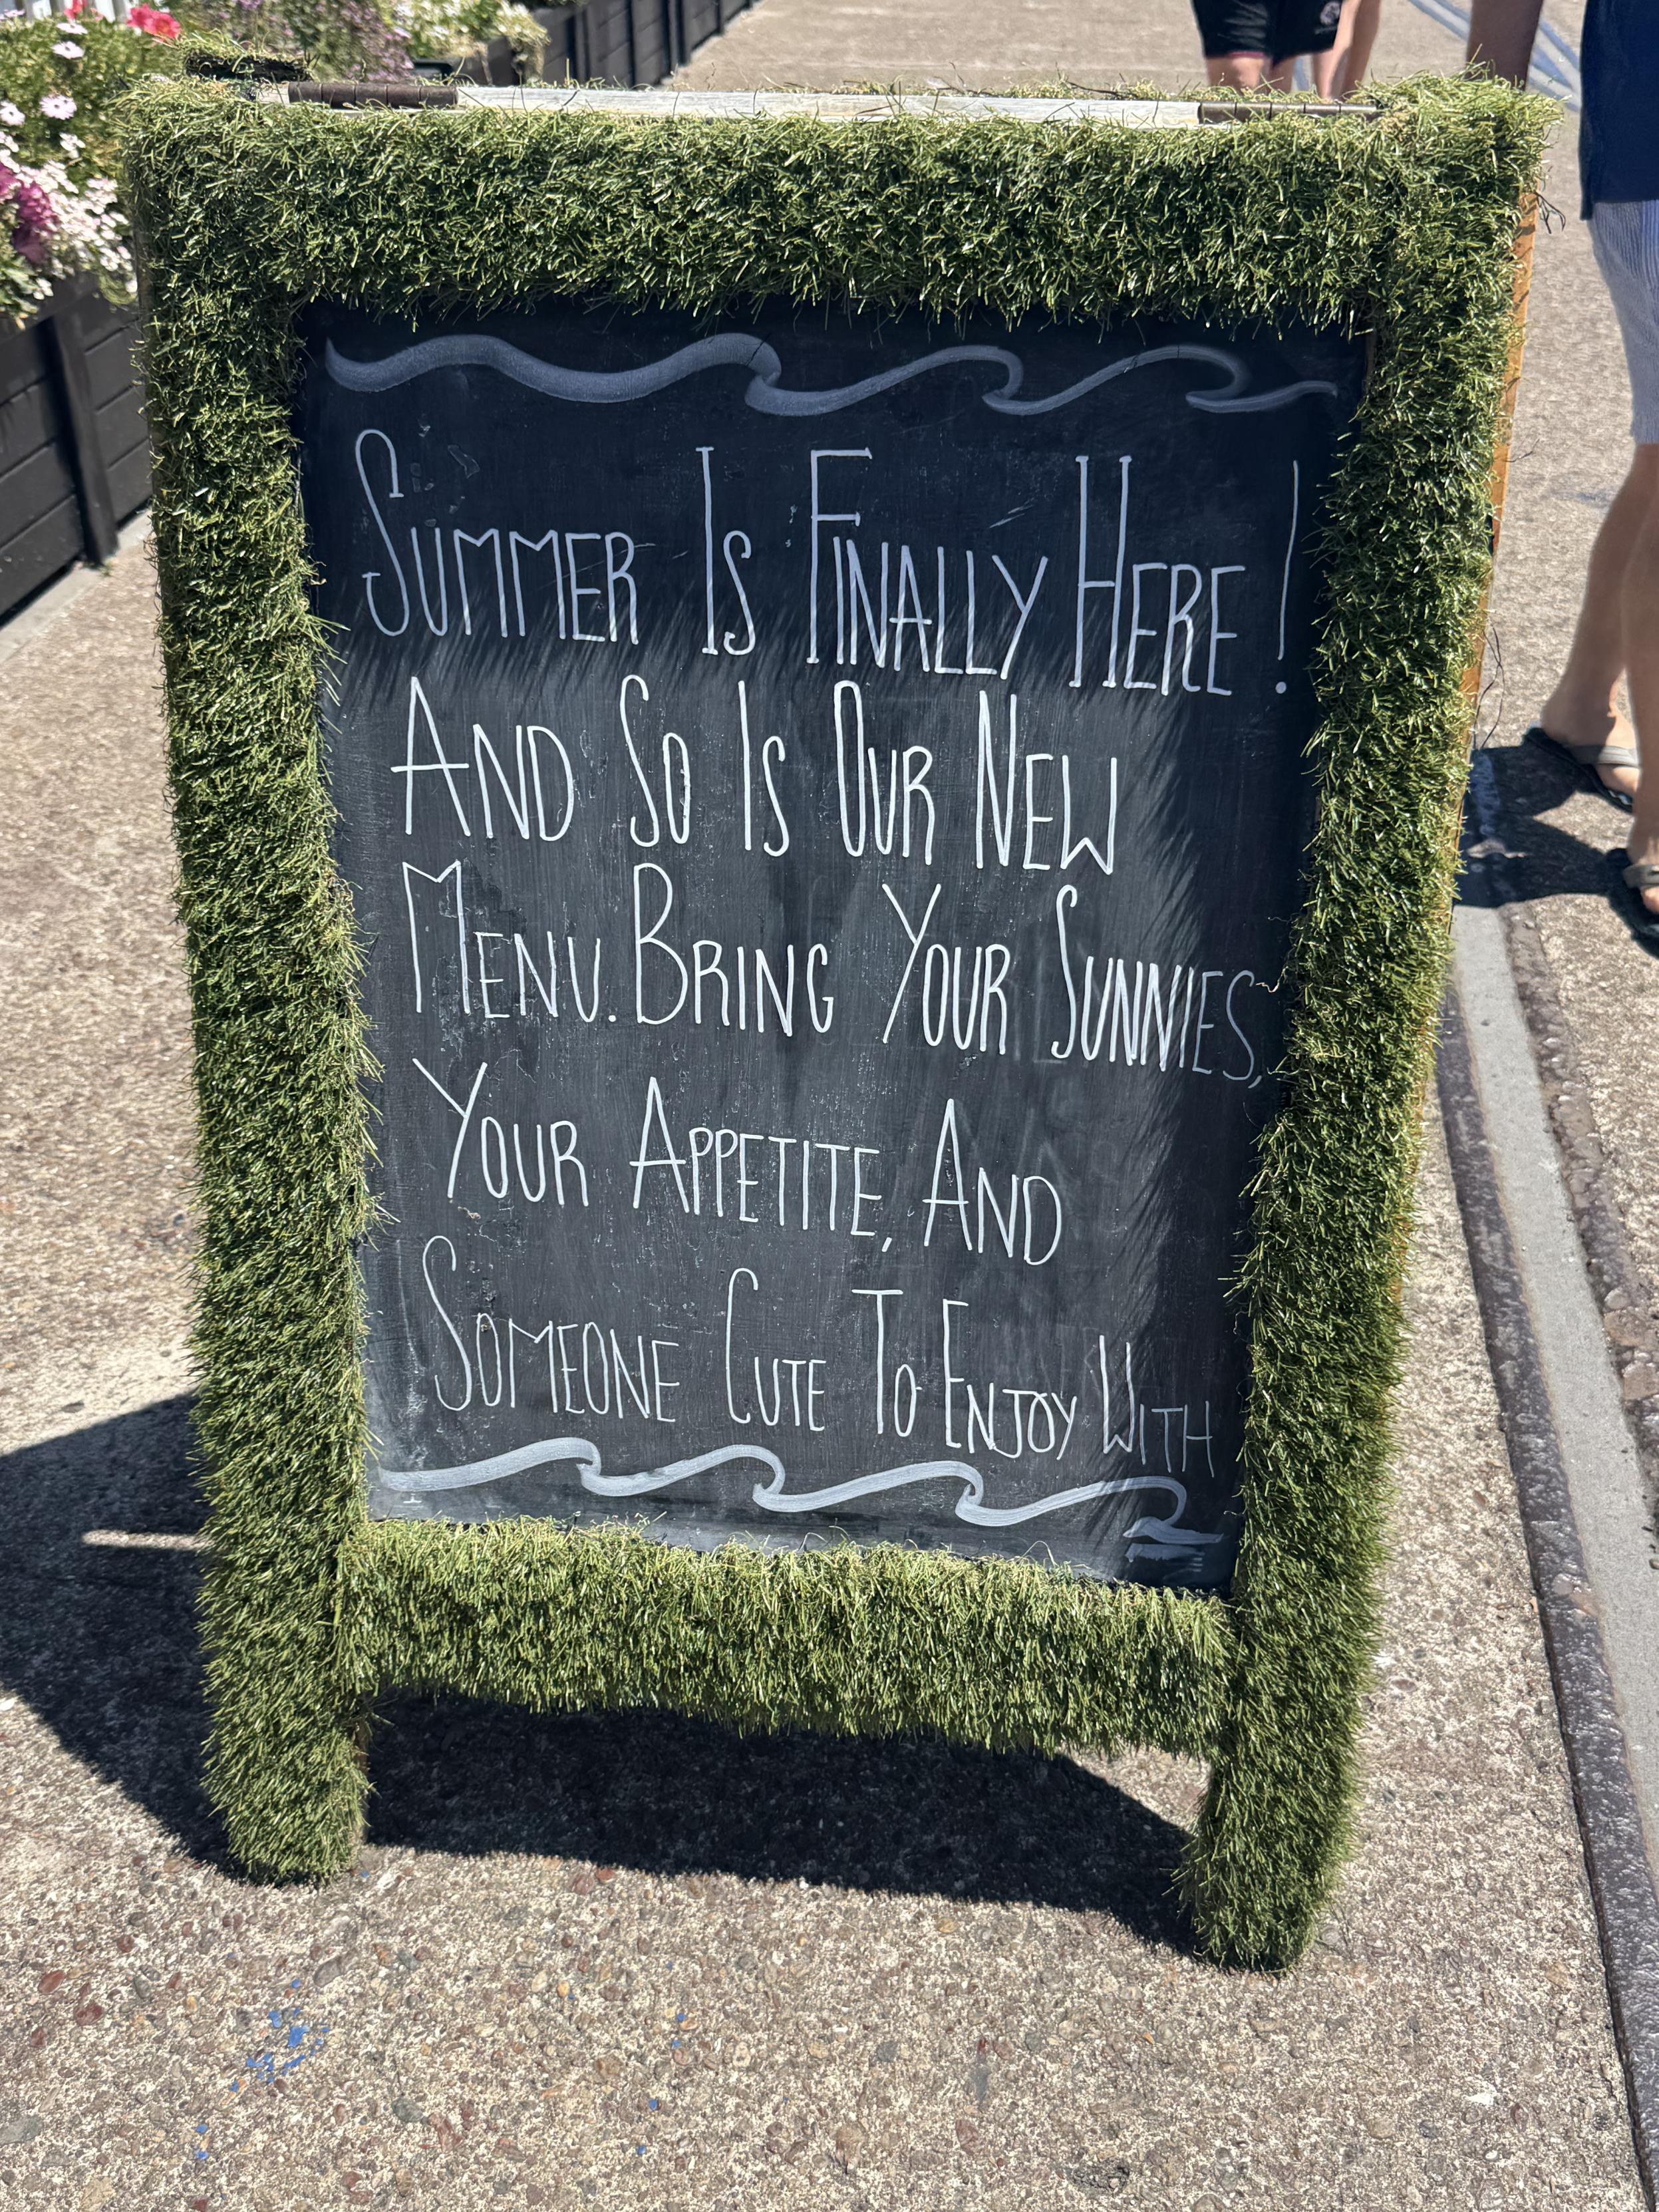 Summer Is Finally Here!
And So Is Our New
Menu. Bring Your Sunnies,
Your Appetite, And
Someone Cute To Enjoy With